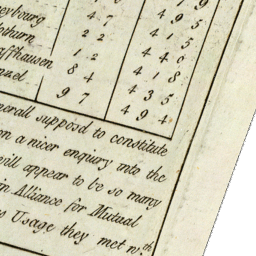 eybourg 47 495
othurn 22 415
affhausen 12 440
nzel 84 418
97 435
494
nerall supposd to constitute
on a nicer enquiry into the
will appear to be so many
in Alliance for Mutual
Usage they met wth